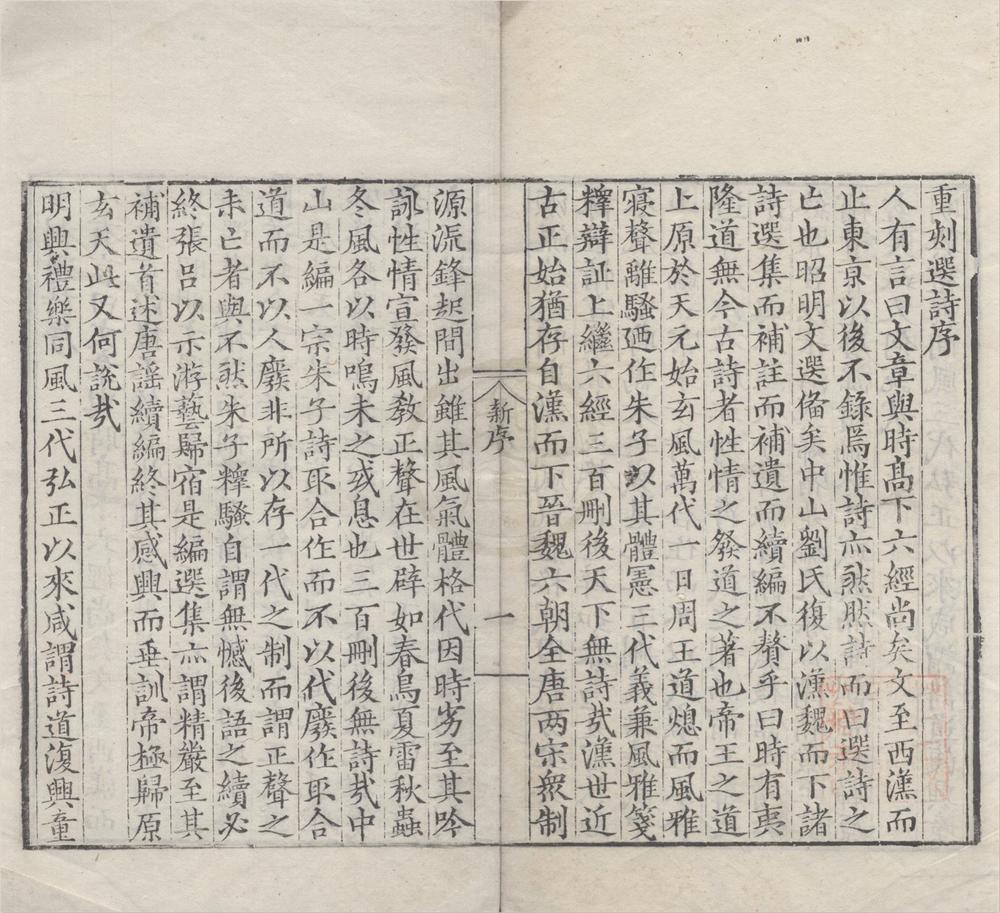 重刻選詩序
人有言曰文章與時高下六經尚矣文至西漢而
止東亰以後不錄焉惟詩亦然然詩而曰選詩之
亡也昭明文選俻矣中山劉氏復以漢魏而下諸
詩選集而補註而補遺而續編不贅乎曰時有夷
隆道無今古詩者性情之發道之著也帝王之道
上原於天元始玄風萬代一日周王道熄而風雅
寢聲離騷廼作朱子以其體憲三代義兼風雅箋
釋辯証上繼六經三百刪後天下無詩㢤漢世近
古正始猶存自漢而下晉魏六朝全唐两宗衆制
新序
一
源流鋒起間出雖其風氣體格代因時劣至其吟
詠性情宣發風敎正聲在世辟如春鳥夏雷秋蟲
冬風各以時鳴未之或息也三百刪後無詩㢤中
山是編一宗朱子詩取合作而不以代廢作取合
道而不以人廢非所以存一代之制而謂正聲之
未亡者與不然朱子釋騷自謂無憾後語之續必
終張呂以示游藝歸宿是編選集亦謂精嚴至其
補遺首述唐謡續編終其感興而垂訓帝極歸原
玄天此又何說㢤
明興禮樂同風三代弘正以來咸謂詩道復興童